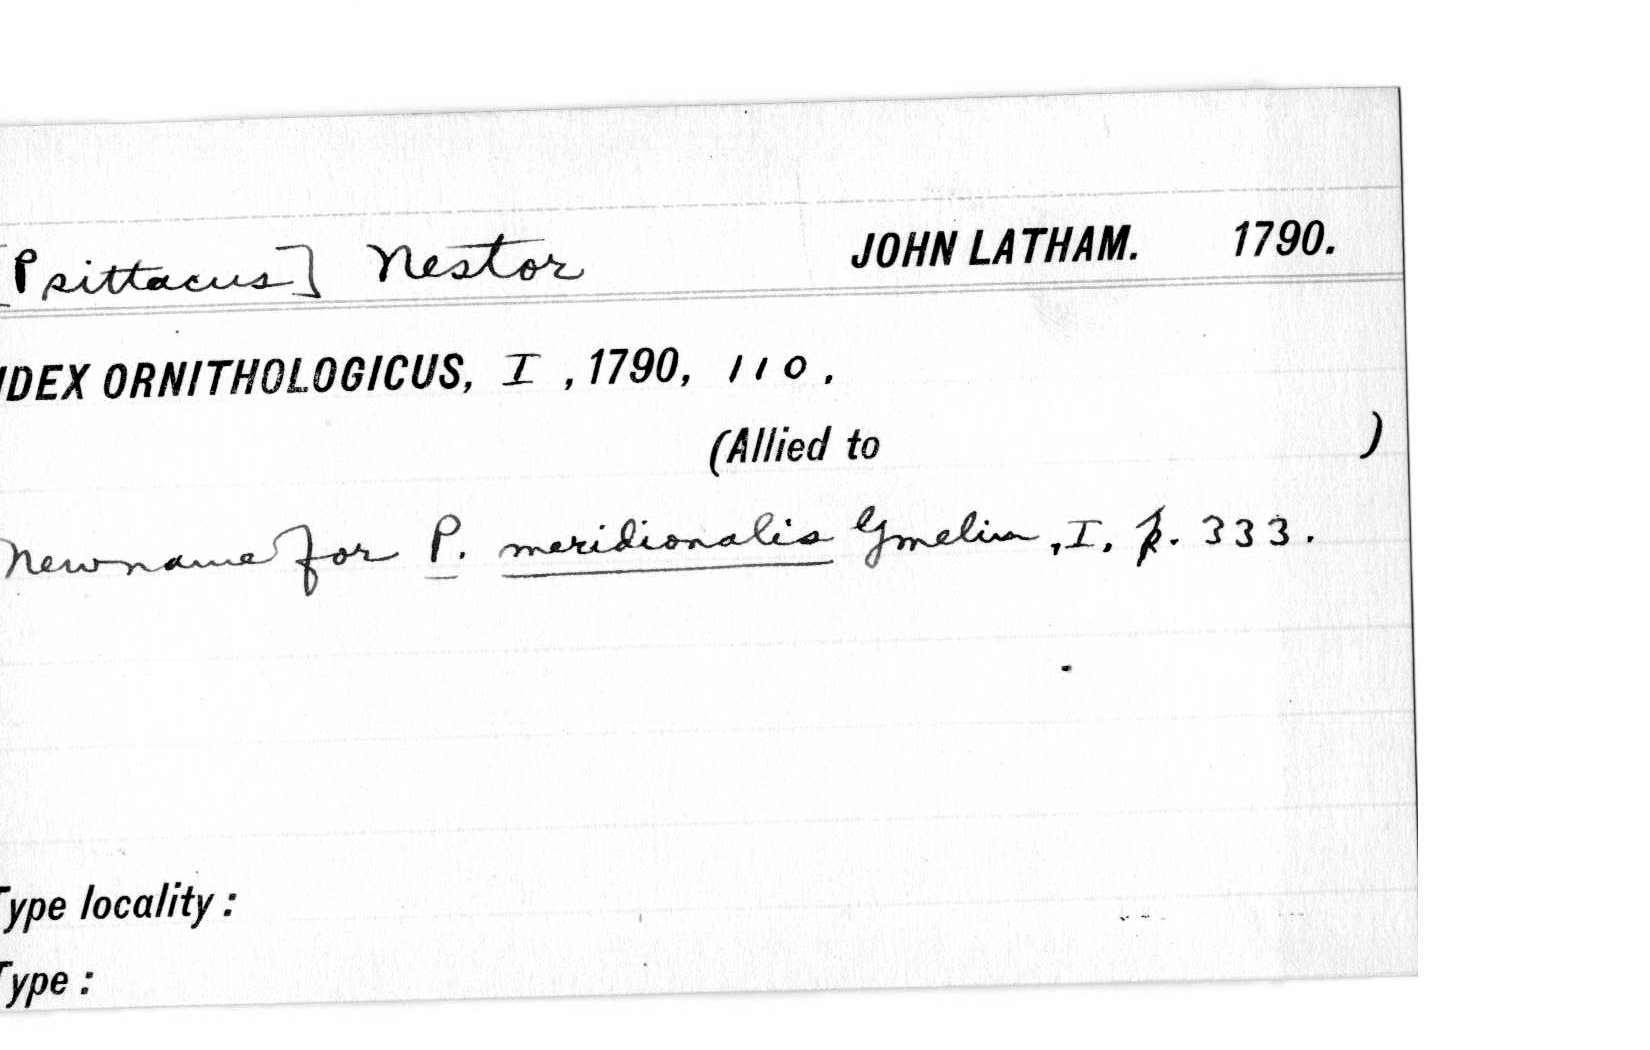 [Psittacus] Nestor JOHN LATHAM. 1790.
NDEX ORNITHOLOGICUS, I, 1790, 110.
(Allied to )
New name for P. meridionalis Gmelin, I, p. 333.
Type locality:
Type: